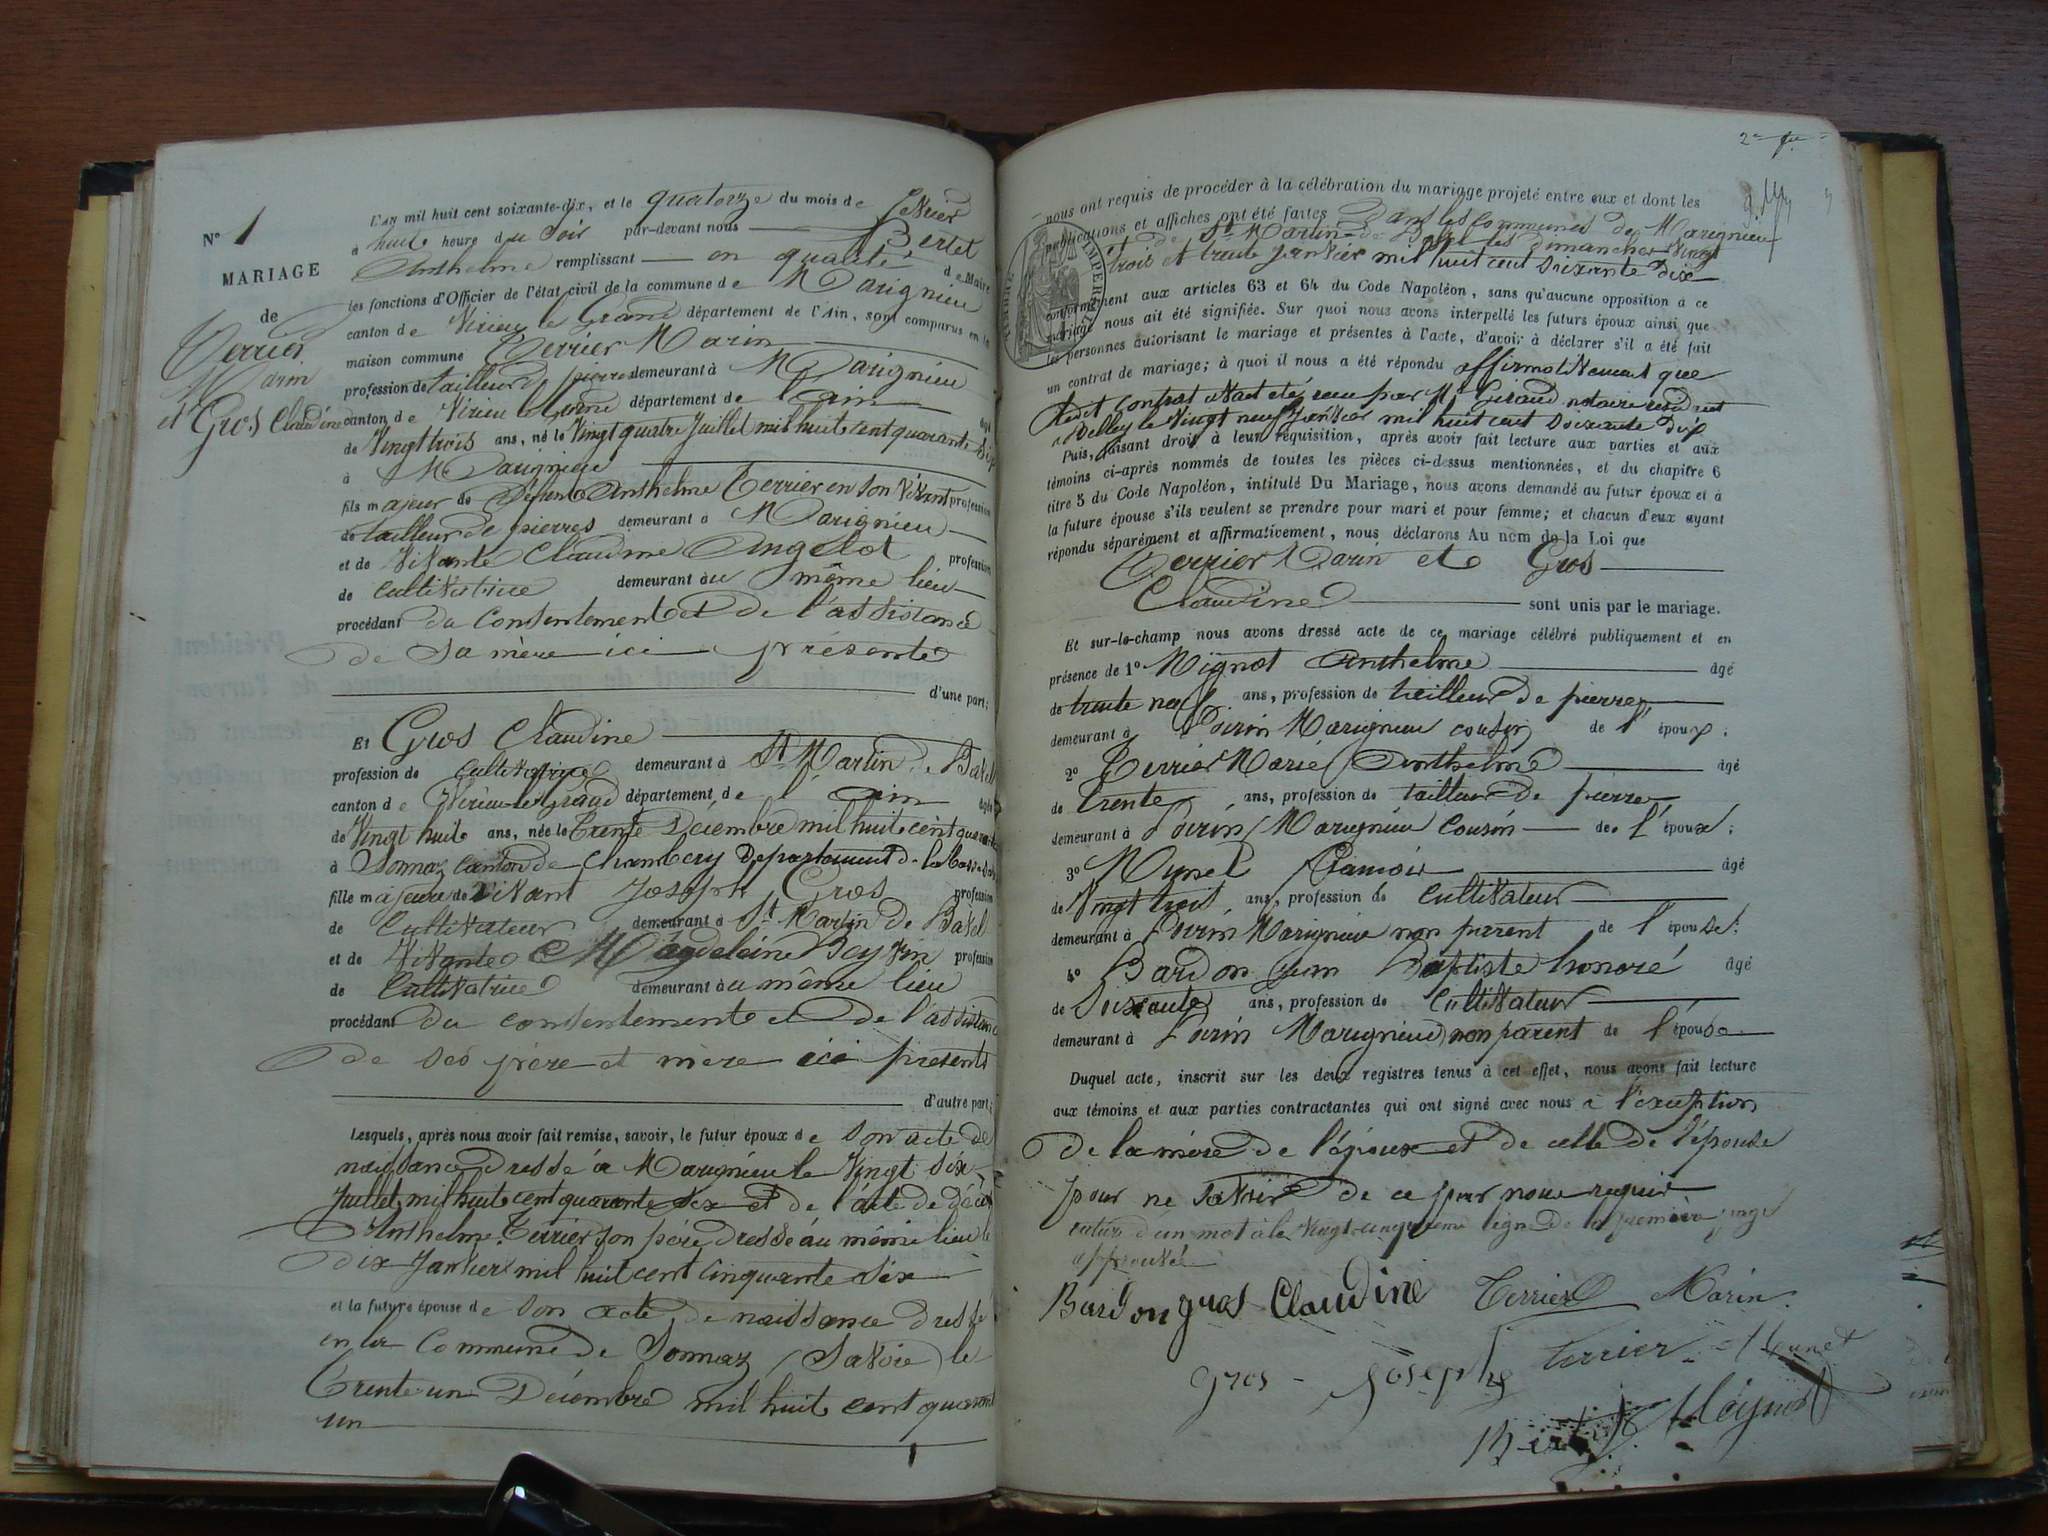 N° 1
MARIAGE
de
Terrier
Marin
et Gros Claudine
L'an mil huit cent soixante-dix, et le quatorze du mois de février
à huit heures du soir par-devant nous Bertet
Anthelme remplissant en qualité de Maire
les fonctions d'Officier de l'état civil de la commune de Marignieu
canton de Virieu le Grand département de l'Ain, sont comparus en la
maison commune Terrier Marin
profession de tailleur de pierres demeurant à Marignieu
canton de Virieu le Grand département de l'ain âgé
de Vingt trois ans, né le Vingt quatre Juillet mil huit cent quarante six
à Marignieu
fils majeur de défunt Anthelme Terrier en son vivant profession
de tailleur de pierres demeurant à Marignieu
et de Vivante Claudine Angelot profession
de cultivatrice demeurant au même lieu
procédant du Consentement et de l'assistance
de sa mère ici présente
d'une part;
Et Gros Claudine
profession de cultivatrice demeurant à St Martin de Bavel
canton de Virieu-le-Grand département de l'ain âgée
de Vingt huit ans, née le Trente Décembre mil huit cent quarante
à Sonnaz canton de Chambery Département de la
fille majeure de vivant Joseph Gros profession
de Cultivateur demeurant à St Martin de Bavel
et de Vivante Magdeleine Beyrin profession
de Cultivatrice demeurant au même lieu
procédant du consentement et de l'assistance
de ses père et mère ici présents
d'autre part;
Lesquels, après nous avoir fait remise, savoir, le futur époux de son acte de
naissance dressé à Marignieu le Vingt six
Juillet mil huit cent quarante six et de l'acte de décès
Anthelme Terrier son père dressé au même lieu le
dix Janvier mil huit cent cinquante six
et la future épouse de son acte de naissance dressé
en la Commune de Sonnaz (Savoie) le
Trente un Décembre mil huit cent quarante
un
2e
nous ont requis de procéder à la célébration du mariage projeté entre eux et dont les
publications et affiches ont été faites dans les Communes de Marignieu
et de St Martin de Bavel les dimanches Vingt
trois et trente Janvier mil huit cent soixante dix
conformément aux articles 63 et 64 du Code Napoléon, sans qu'aucune opposition à ce
mariage nous ait été signifiée. Sur quoi nous avons interpellé les futurs époux ainsi que
les personnes autorisant le mariage et présentes à l'acte, d'avoir à déclarer s'il a été fait
un contrat de mariage; à quoi il nous a été répondu affirmativement que
ledit contrat avait été reçu par Me Giraud notaire résident
à Belley le Vingt neuf Janvier mil huit cent soixante dix
Puis, faisant droit à leur réquisition, après avoir fait lecture aux parties et aux
témoins ci-après nommés de toutes les pièces ci-dessus mentionnées, et du chapitre 6
titre 5 du Code Napoléon, intitulé Du Mariage, nous avons demandé au futur époux et à
la future épouse s'ils veulent se prendre pour mari et pour femme; et chacun d'eux ayant
répondu séparément et affirmativement, nous déclarons Au nom de la Loi que
Terrier Marin et Gros
Claudine sont unis par le mariage.
Et sur-le-champ nous avons dressé acte de ce mariage célébré publiquement et en
présence de 1° Mignot Anthelme âgé
de trente neuf ans, profession de tailleur de pierres
demeurant à Poirin Marignieu cousin de l'époux;
2° Terrier Marie Anthelme âgé
de trente ans, profession de tailleur de pierre
demeurant à Poirin Marignieu Cousin de l'époux;
3° Munet François âgé
de Vingt trois ans, profession de Cultivateur
demeurant à Poirin Marignieu non parent de l'épouse;
4° Bardon Jean Baptiste honoré âgé
de soixante ans, profession de Cultivateur
demeurant à Poirin Marignieu non parent de l'épouse
Duquel acte, inscrit sur les deux registres tenus à cet effet, nous avons fait lecture
aux témoins et aux parties contractantes qui ont signé avec nous à l'exception
de la mère de l'époux et de celle de l'épouse
pour ne savoir de ce par nous requis
rature d'un mot à la Vingt-cinquième ligne de la première page
approuvée
Bardon gros Claudine Terrier Marin
gros Joseph Terrier Munet
Bertet Mignot